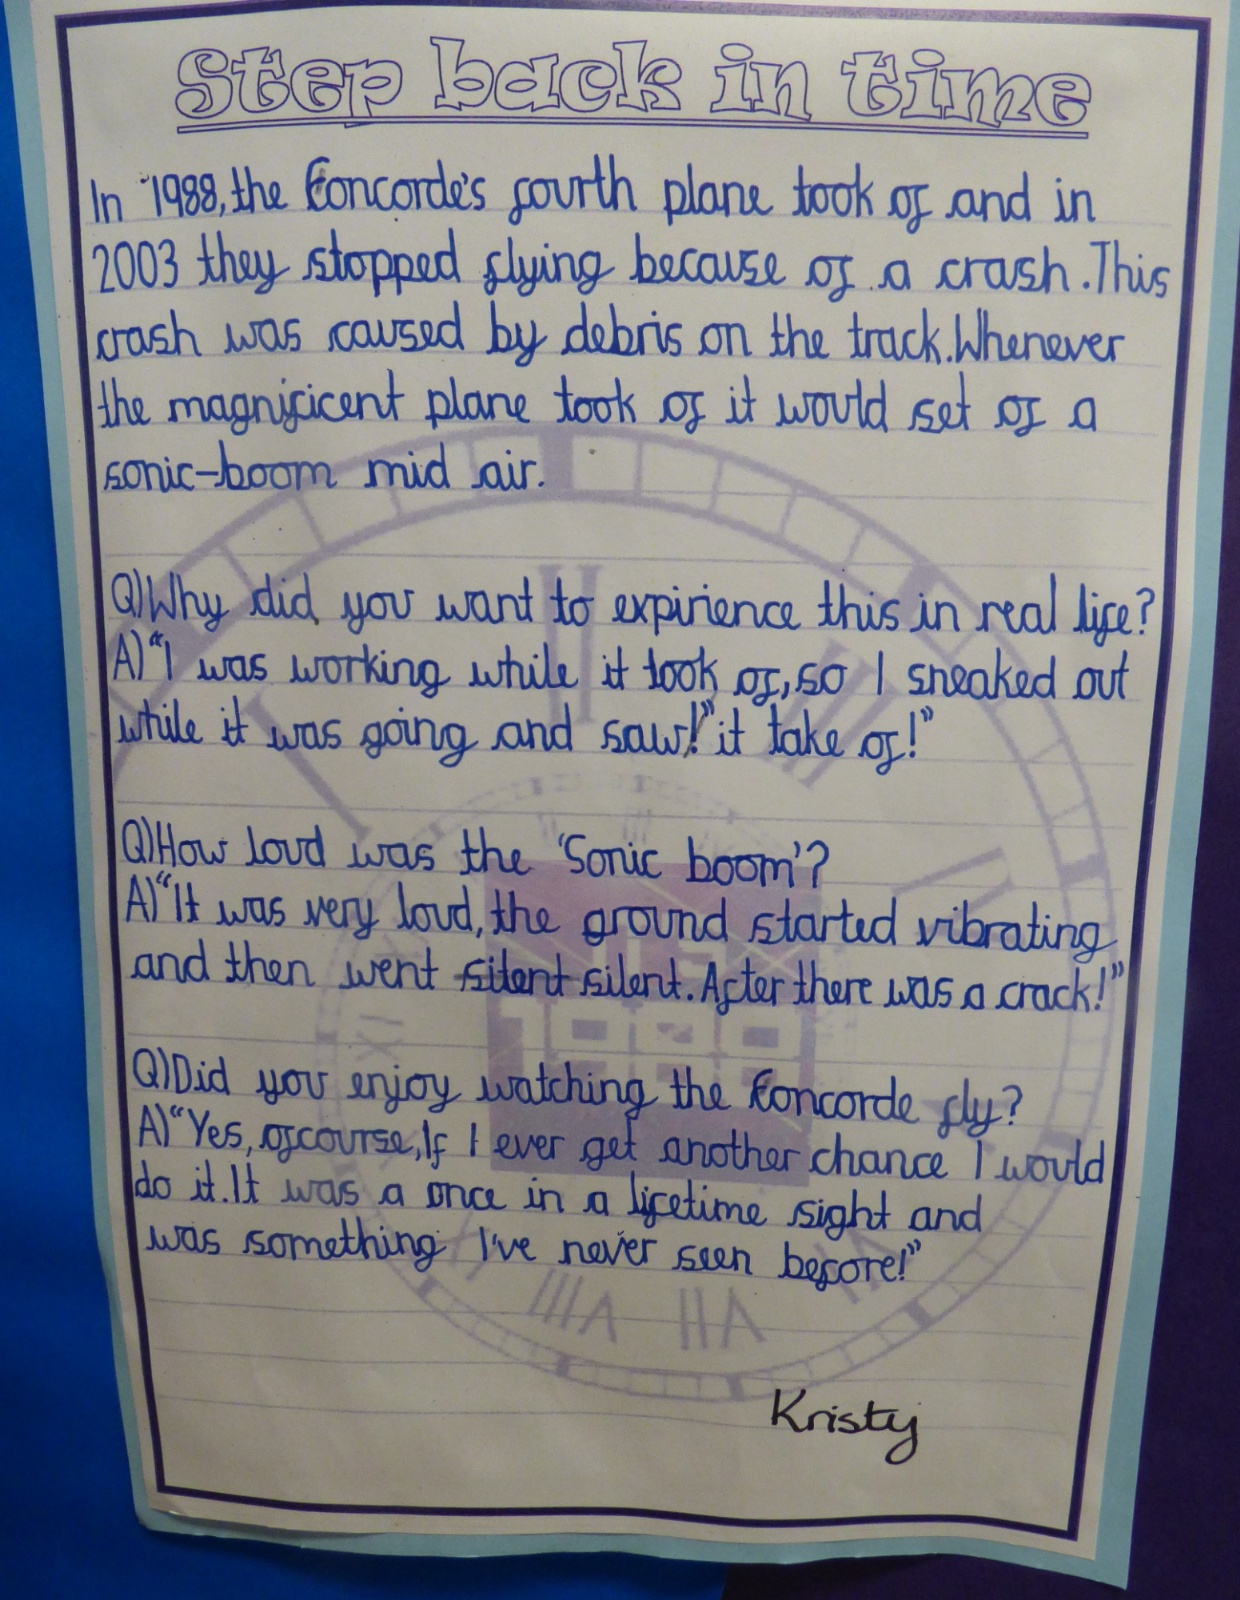 Step back in time
In 1988, the Concorde's fourth plane took of and in
2003 they stopped flying because of a crash. This
crash was caused by debris on the track. Whenever
the magnificent plane took of it would set of a
sonic-boom mid air.
Q) Why did you want to expirience this in real life?
A) "I was working while it took of, so I sneaked out
while it was going and saw!" it take of!"
Q) How loud was the 'Sonic boom'?
A) "It was very loud, the ground started vibrating
and then went silent silent. After there was a crack!"
Q) Did you enjoy watching the Concorde fly?
A) "Yes, ofcourse, If I ever get another chance I would
do it. It was a once in a lifetime sight and
was something I've never seen before!"
1988
Kristy